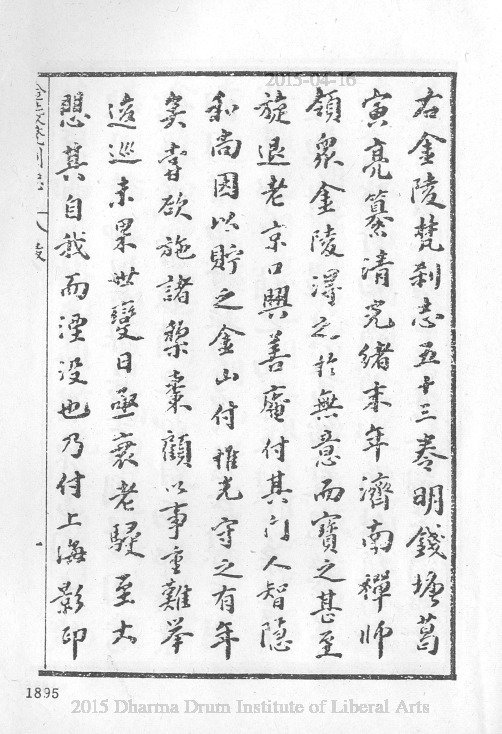 右金陵梵刹志五十三卷明錢塘葛
寅亮纂清光緒末年濟南禪師
領眾金陵得之於無意而寶之甚至
旋退老京口興善庵付其門人智隱
和尚因以貯之金山付惟光守之有年
矣嘗欲施諸棃棗顧以事重難舉
逡巡未果世變日亟衰老駸至大
懼其自我而湮没也乃付上海影印
金陵梵刹志 跋
一
1895
2015-04-16
2015 Dharma Drum Institute of Liberal Arts